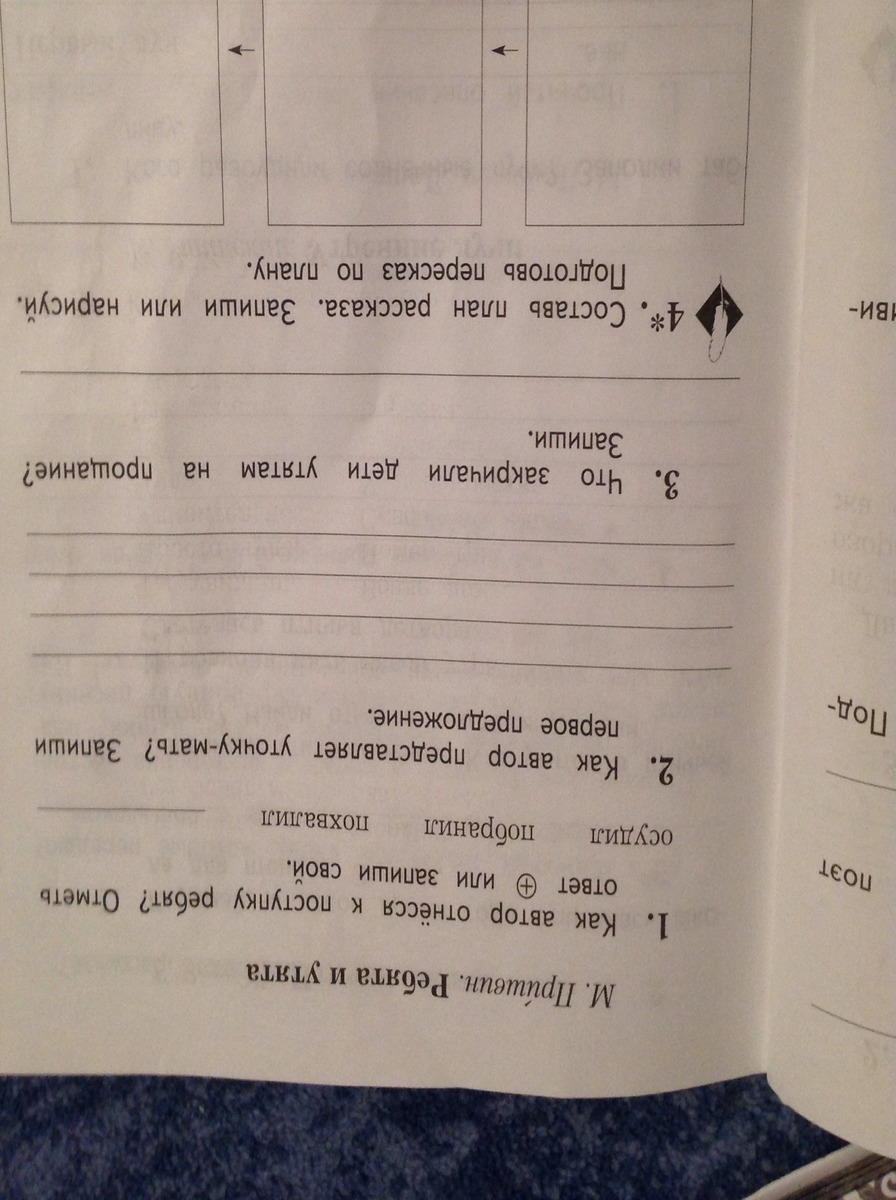 М. Пришвин. Ребята и утята
1. Как автор отнёсся к поступку ребят? Отметь
ответ ⊕ или запиши свой.
осудил побранил похвалил
2. Как автор представляет уточку-мать? Запиши
первое предложение.
3. Что закричали дети утятам на прощание?
Запиши.
4*. Составь план рассказа. Запиши или нарисуй.
Подготовь пересказ по плану.
поэт
Под-